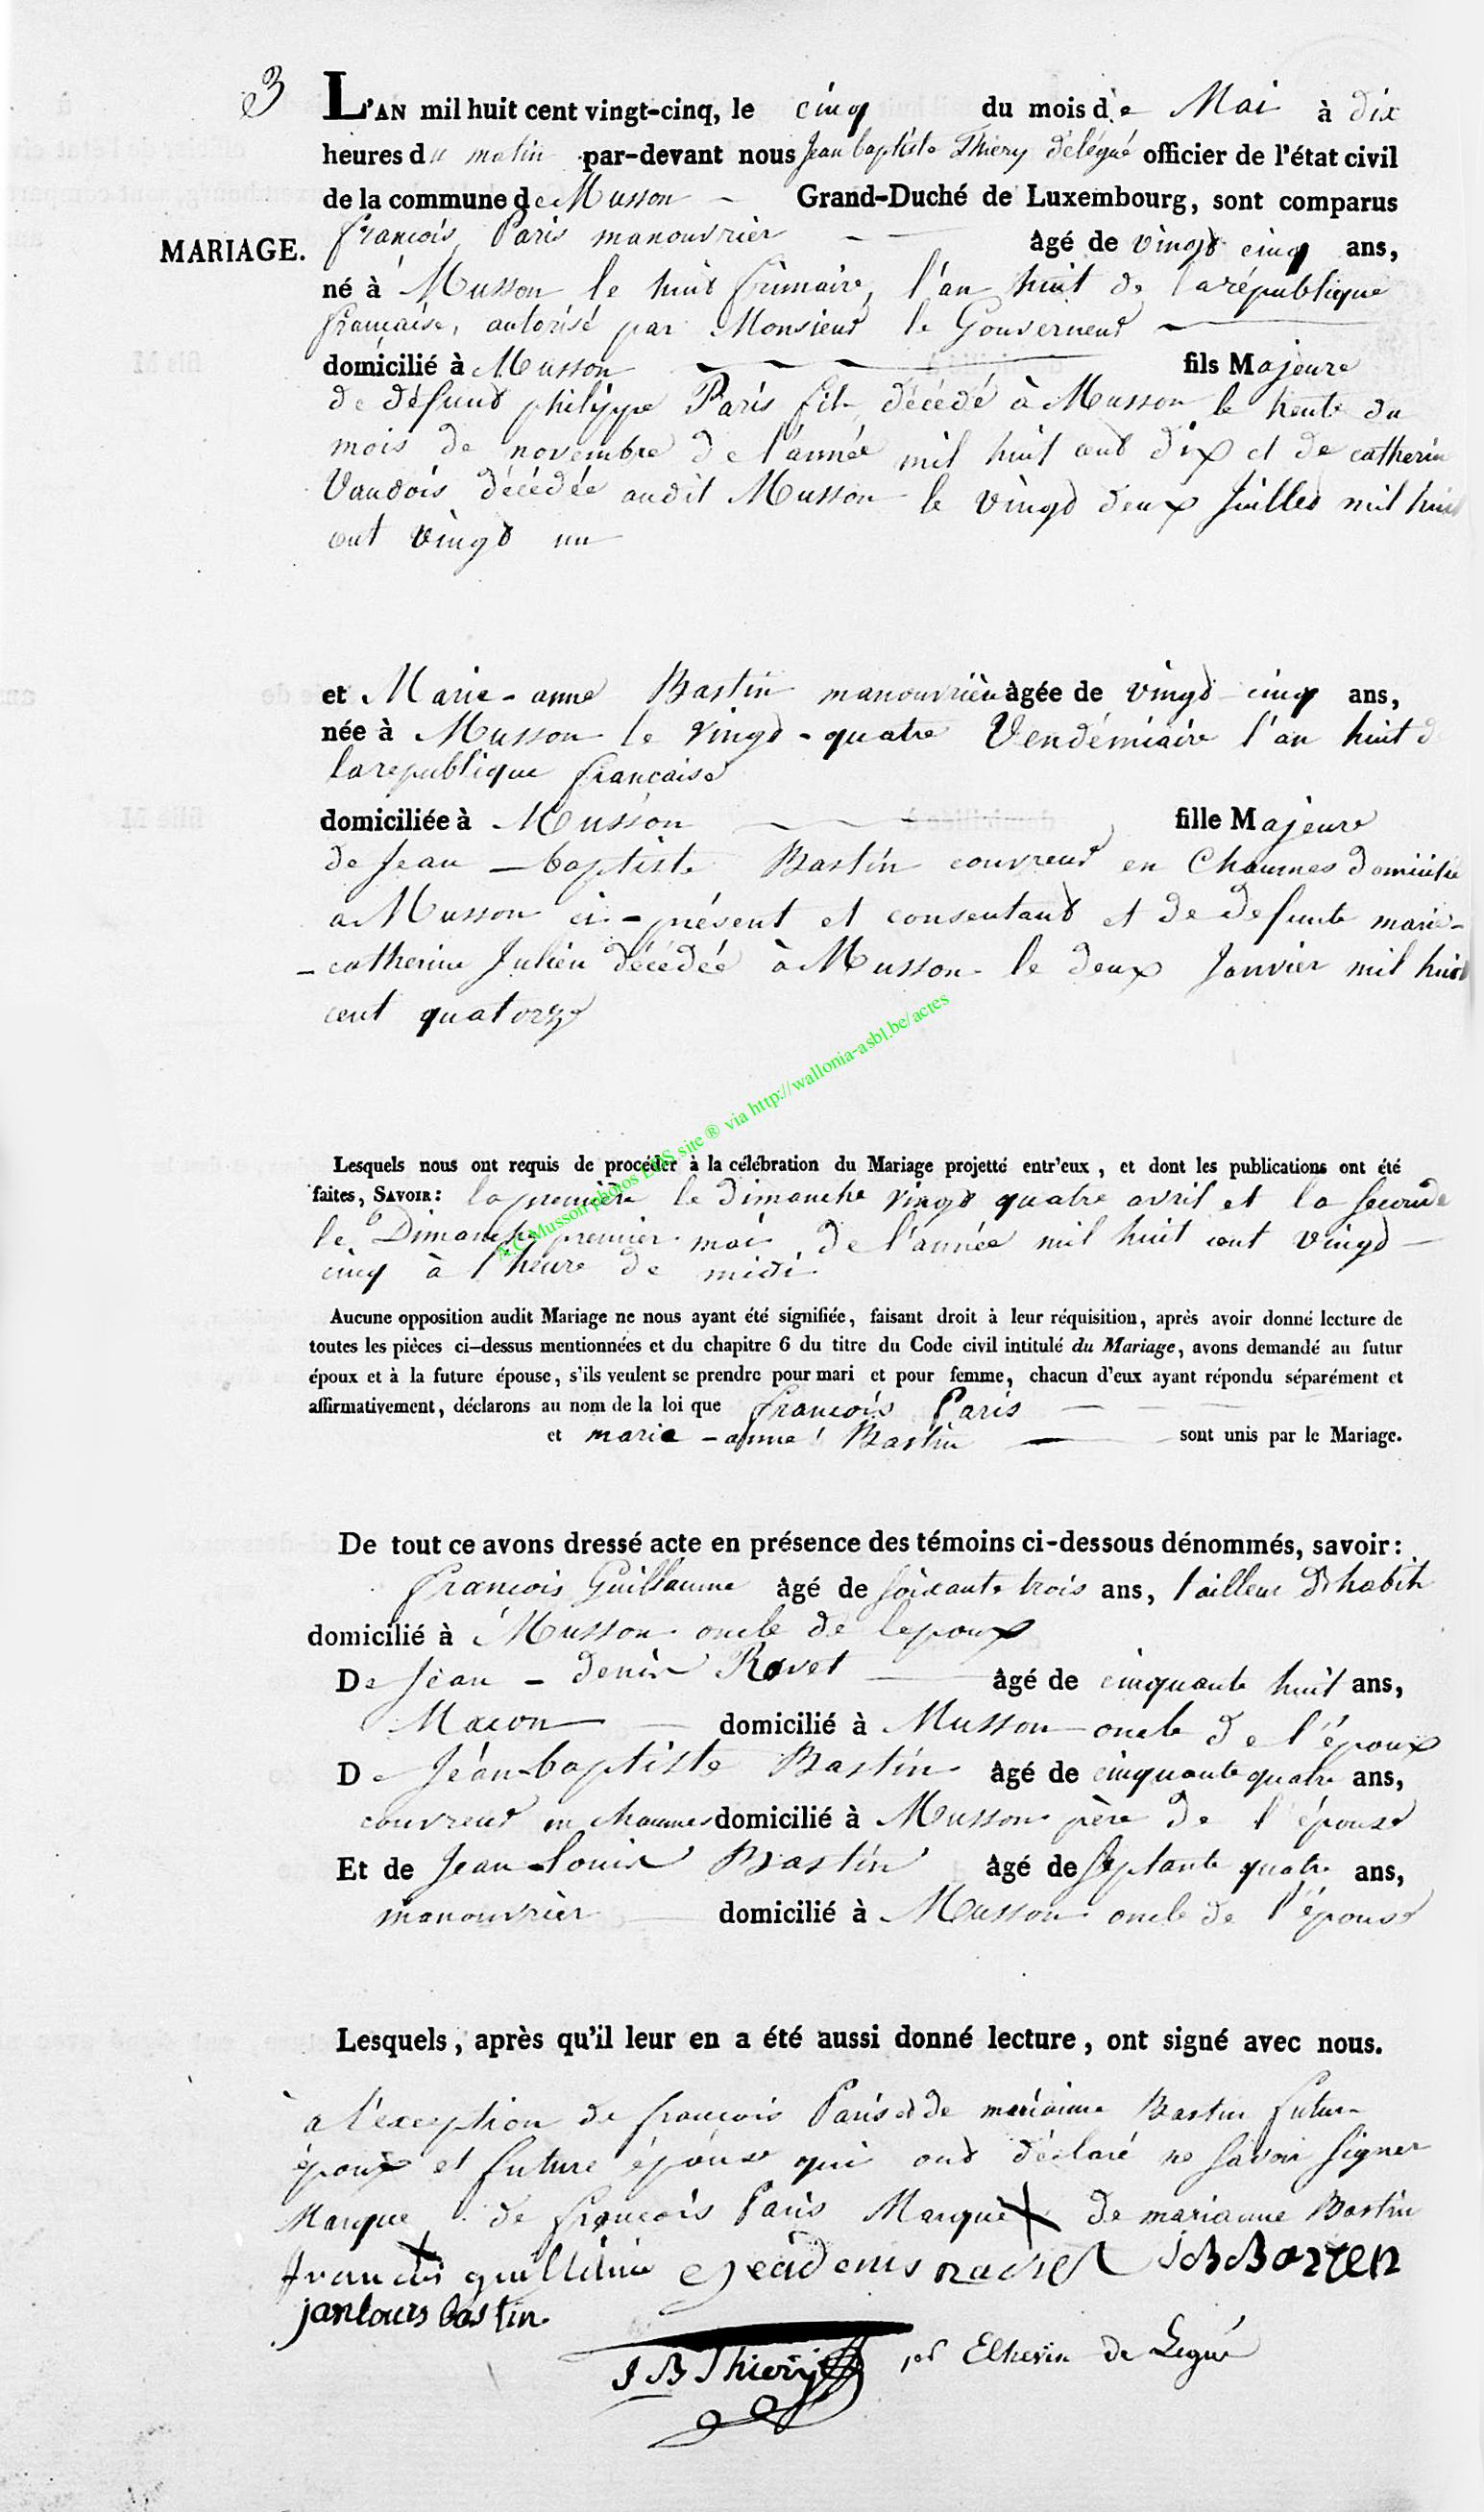 3 L'AN mil huit cent vingt-cinq, le cinq du mois de Mai à dix
heures du matin par-devant nous Jean baptiste Thiery délégué officier de l'état civil
de la commune de Musson Grand-Duché de Luxembourg, sont comparus
MARIAGE. françois Paris manouvrier âgé de vingt cinq ans,
né à Musson le huit frimaire, l'an huit de la république
française, autorisé par Monsieur le Gouverneur
domicilié à Musson fils Majeure
de défunt philippe Paris décédé à Musson le trente du
mois de novembre de l'année mil huit cent dix et de catherin
Vaudois décédée audit Musson le vingt deux Juillet mil huit
cent vingt un
et Marie-anne Bastin manouvrièr âgée de vingt cinq ans,
née à Musson le vingt-quatre Vendémiaire l'an huit d
la republique française
domiciliée à Musson fille Majeure
de Jean-baptiste Bastin couvreur en Chaumes domicilié
a Musson ci-présent et consentant et de defunte marie-
-catherine Julien décédée à Musson le deux Janvier mil huit
cent quatorze
A.C Musson photos LDS site ® via http://wallonia-asbl.be/actes
Lesquels nous ont requis de procéder à la célébration du Mariage projetté entr'eux, et dont les publications ont été
faites, SAVOIR: la première le dimanche vingt quatre avril et la seconde
le Dimanche premier mai de l'année mil huit cent vingt
cinq à l'heure de midi
Aucune opposition audit Mariage ne nous ayant été signifiée, faisant droit à leur réquisition, après avoir donné lecture de
toutes les pièces ci-dessus mentionnées et du chapitre 6 du titre du Code civil intitulé du Mariage, avons demandé au futur
époux et à la future épouse, s'ils veulent se prendre pour mari et pour femme, chacun d'eux ayant répondu séparément et
affirmativement, déclarons au nom de la loi que françois Paris
et marie-anne Bastin sont unis par le Mariage.
De tout ce avons dressé acte en présence des témoins ci-dessous dénommés, savoir:
francois Guillaume âgé de soixante trois ans, tailleur d'habits
domicilié à Musson oncle de lepoux
De Jean-denis Ravet âgé de cinquante huit ans,
Macon domicilié à Musson oncle de l'époux
De Jéan-baptiste Bastin âgé de cinquante quatre ans,
couvreur en chaumes domicilié à Musson père de l'épouse
Et de Jean-Louis Bastin âgé de septante quatre ans,
manouvrièr domicilié à Musson oncle de l'épouse
Lesquels, après qu'il leur en a été aussi donné lecture, ont signé avec nous.
à l'exception de françois Paris et de marianne Bastin futur
époux et future épouse qui ont déclaré ne savoir signer
Marque de françois Paris Marque X de marianne Bastin
X
francois guillaume jeádenis JBBasten
janlouis bastin
J B Thiery Echevin de Legué